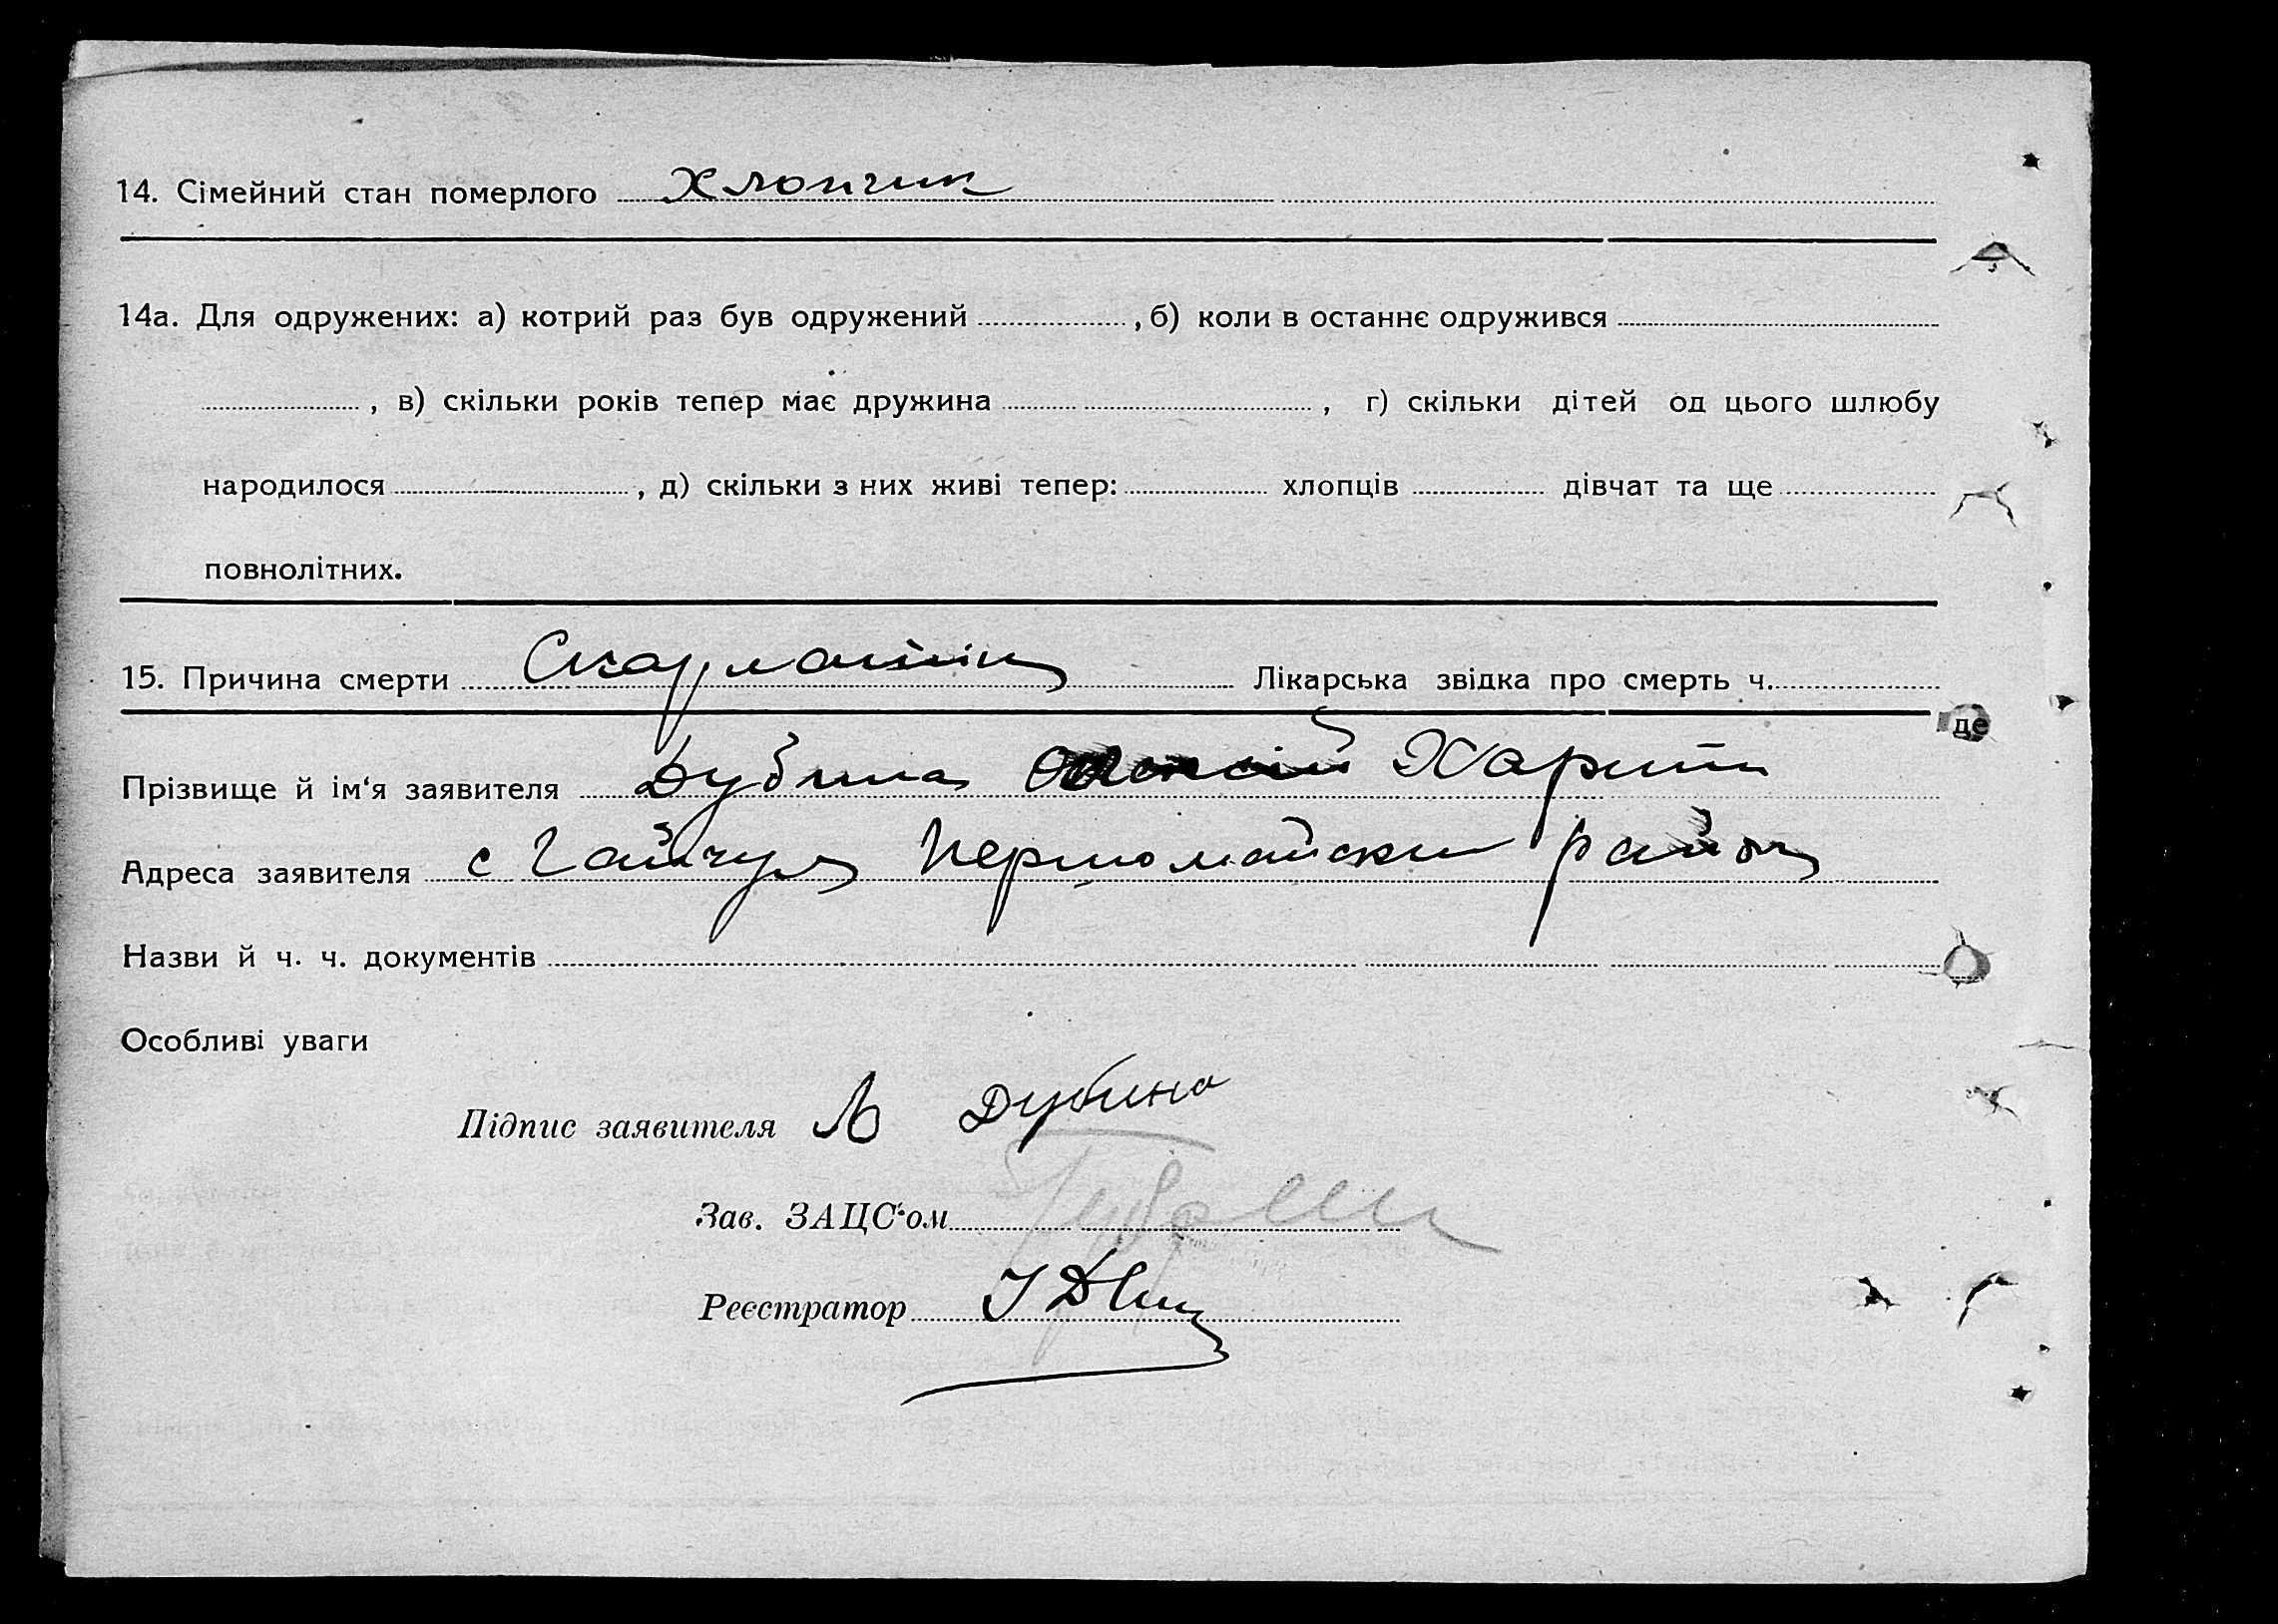 14. Сімейний стан померлого Хлопчик
14а. Для одружених: а) котрий раз був одружений , б) коли в останнє одружився
, в) скільки років тепер має дружина , г) скільки дітей од цього шлюбу
народилося , д) скільки з них живі тепер: хлопців дівчат та ще
повнолітних.
15. Причина смерти Скарлатіна Лікарська звідка про смерть ч.
де
Прізвище й ім‘я заявителя Дубина Харит
Адреса заявителя с Гайчул Первомайски район
Назви й ч. ч. документів
Особливі уваги
Підпис заявителя Дубина
Зав. ЗАЦС‘ом
Реєстратор